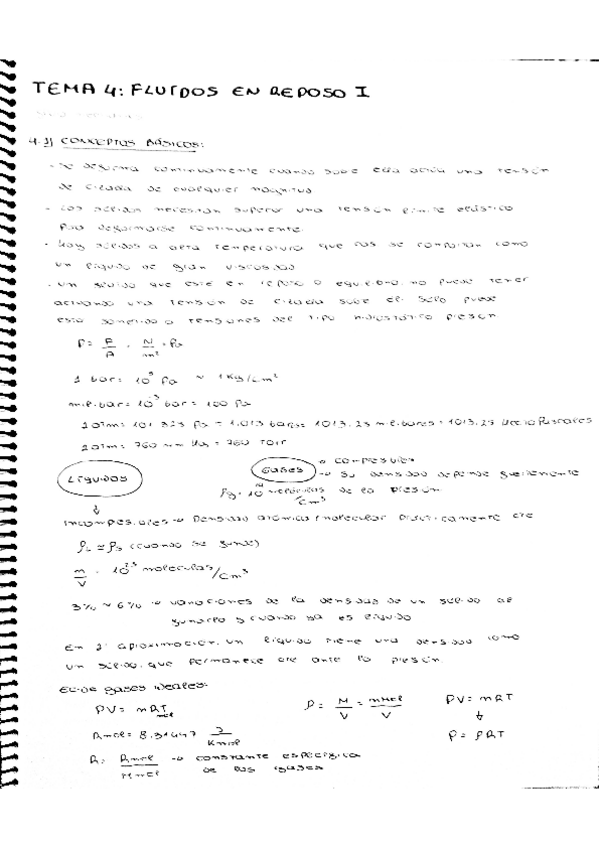 TEMA 4: FLUIDOS EN REPOSO I
4.1) CONCEPTOS BÁSICOS:
- Se deforma continuamente cuando sobre ella actúa una tensión
de cizalla de cualquier magnitud
- Los sólidos necesitan superar una tensión límite elástico
para deformarse continuamente
- Hay sólidos a alta temperatura que se comportan como
un líquido de gran viscosidad
- Un fluido que esté en reposo o equilibrio, no puede tener
actuando una tensión de cizalla sobre el. Solo puede
estar sometido a tensiones del tipo hidrostático presión
P = F/A = N/m² = Pa
1 bar = 10⁵ Pa ≈ 1 Kg/cm²
milibar = 10⁻³ bar = 100 Pa
1 atm = 101 325 Pa = 1.013 bares = 1013.25 milibares = 1013.25 HectoPascales
1 atm = 760 mm Hg = 760 Torr
LÍQUIDOS
GASES → compresibles
→ Su densidad depende
de la presión
moléculas/cm³
↓
Incompresibles → Densidad atómica/molecular prácticamente cte
ρL ≈ ρS (cuando se funde)
m/V = 10²³ moléculas/cm³
3% ~ 6% → variaciones de la densidad de un sólido al
fundirlo y cuando ya es líquido
En 1ª aproximación, un líquido tiene una densidad como
un sólido, que permanece cte ante la presión.
Ec. de gases ideales:
PV = nRT mol
ρ = M/V = nMmol/V
PV = nRT
↓
P = ρRT
Rmol = 8.31447 J/Kmol
R = Rmol/Mmol → constante específica
de los gases